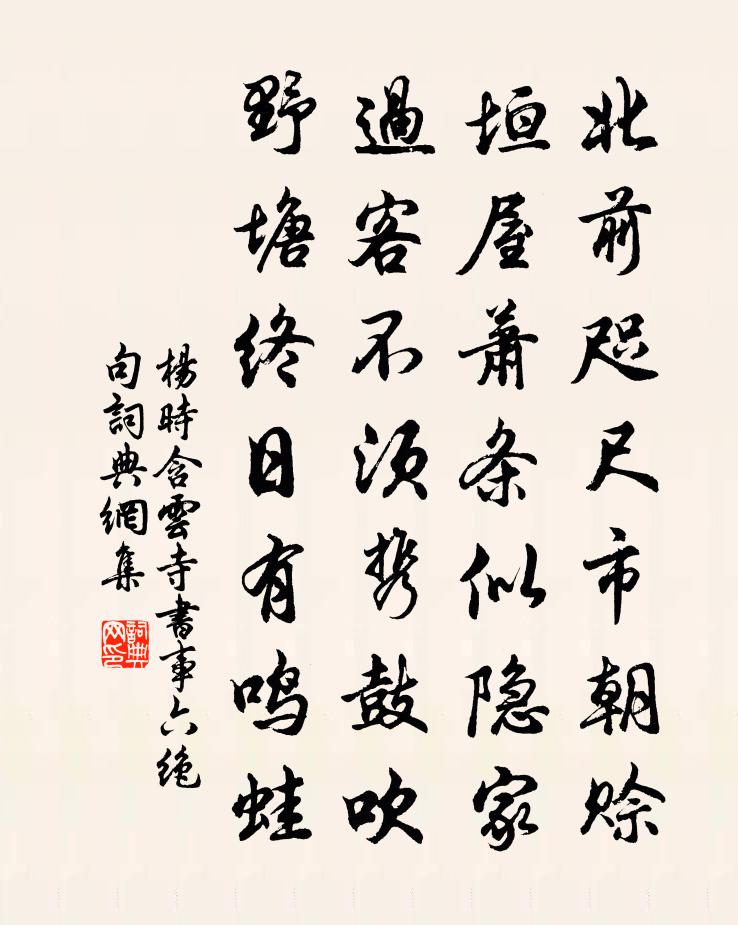 北前咫尺市朝赊
垣屋萧条似隐家
過客不须携鼓吹
野塘终日有鸣蛙
楊時含雲寺書事六绝
句詞典網集
詞典网印